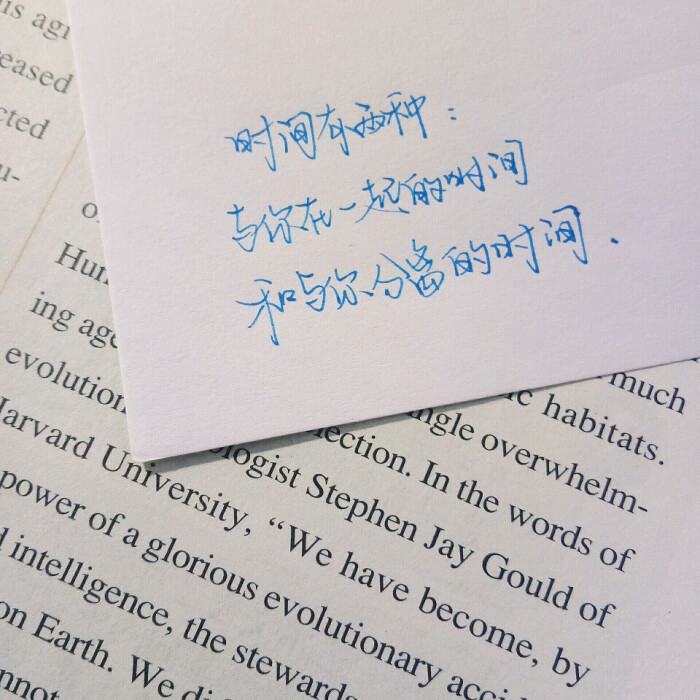 时间有两种：
与你在一起的时间
和与你分离的时间.
us agr
reased
cted
u-
o
Hun
ing age
evolution
lection. In the words of
Harvard University, "We have become, by
power of a glorious evolutionary accid
intelligence, the stewards
on Earth. We di
nnot
much
ic habitats.
ngle overwhelm-
ologist Stephen Jay Gould of